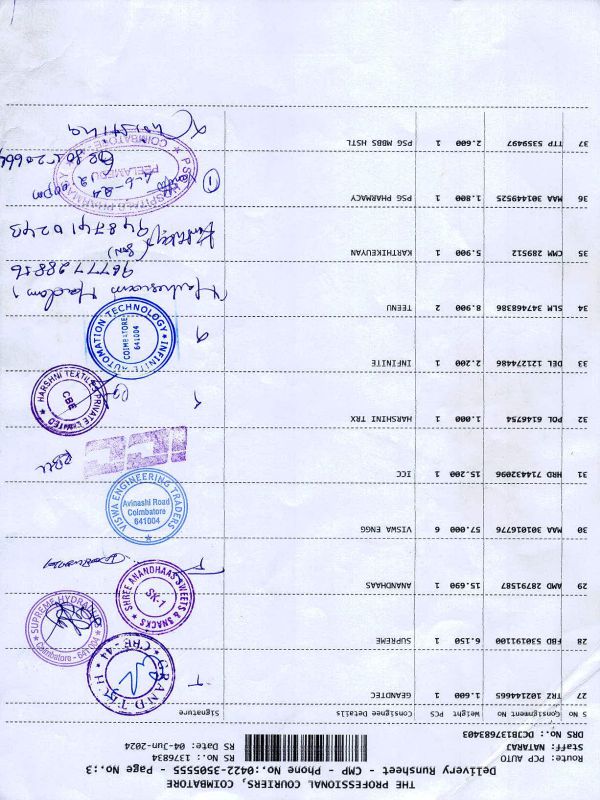 THE PROFESSIONAL COURIERS, COIMBATORE
Delivery Runsheet - CMP - Phone No.:0422-3505555 - Page No.:3
Route: PCP AUTO
RS No.: 1376834
Staff: NATARAJ
RS Date: 04-Jun-2024
DRS No.: DCJB1376834O3
S No Consignment No Weight PCS Consignee Details Signature
27 TRZ 102144665 1.600 1 GEANDTEC
GRANDTECH
CBE-44
28 FBD 530191100 6.150 1 SUPREME
SUPREME HYDRAULICS
Coimbatore - 641 004
29 AMD 28791587 15.690 1 ANANDHAAS
SHREE ANANDHAAS SWEETS & SNACKS
SK-1
30 MAA 301016776 57.000 6 VISWA ENGG
VISWA ENGINEERING TRADERS
Avinashi Road
Coimbatore
641004
31 HRD 714432096 15.200 1 ICC
ICC
32 POL 6146754 1.000 1 HARSHINI TRX
HARSHNI TEXTILES PRIVATE LIMITED
CBE
33 DEL 121274486 2.200 1 INFINITE
INFINITE AUTOMATION TECHNOLOGY
COIMBATORE
641004
34 SLM 347468386 8.900 2 TEENU
35 CMM 289512 5.900 1 KARTHIKEUYAN
9487410243
36 MAA 301449525 1.800 1 PSG PHARMACY
PSG HOSPITALS PHARMACY
PEELAMEDU
COIMBATORE
37 TTP 5359497 2.600 1 PSG MBBS HSTL